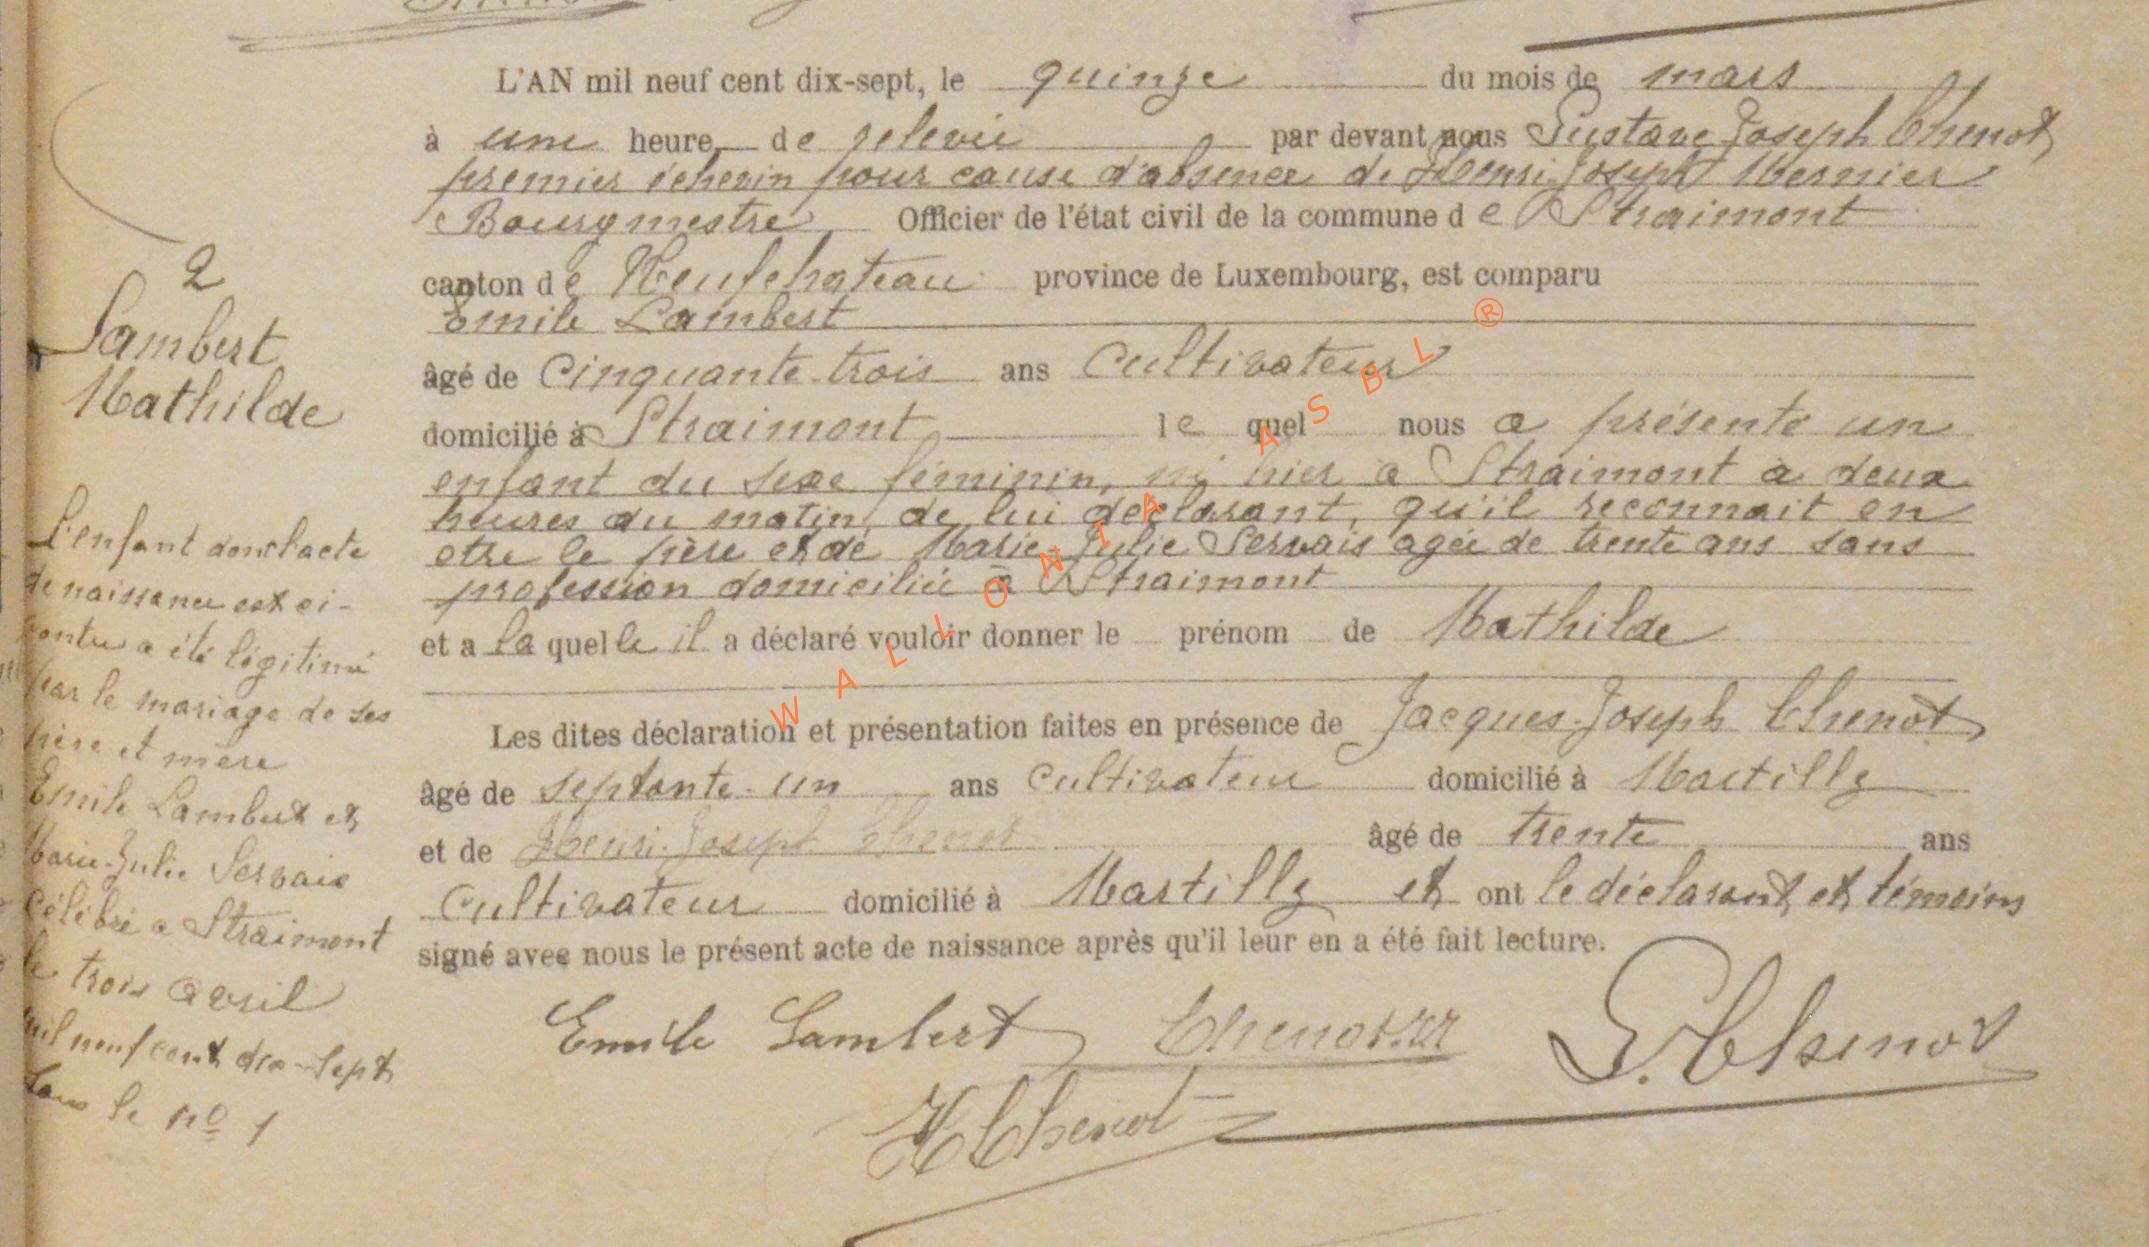 2
Lambert
Mathilde
L'enfant dont l'acte
de naissance est ci-
contre a été légitimé
par le mariage de ses
père et mère
Emile Lambert et
Marie-Julie Servais
célébré a Straimont
le trois avril
mil neuf cent dix-sept
sous le nº 1
L'AN mil neuf cent dix-sept, le quinze du mois de mars
à une heure de relevée par devant nous Gustave Joseph Chenot
premier échevin pour cause d'absence de Henri Joseph Mernier
Bourgmestre Officier de l'état civil de la commune de Straimont
canton de Neufchateau province de Luxembourg, est comparu
Emile Lambert
âgé de cinquante-trois ans cultivateur
domicilié à Straimont le quel nous a présenté un
enfant du sexe féminin, né hier à Straimont à deux
heures du matin, de lui déclarant, qu'il reconnait en
etre le père et de Marie Julie Servais agée de trente ans sans
profession domiciliée à Straimont
et a la quelle il a déclaré vouloir donner le prénom de Mathilde
Les dites déclaration et présentation faites en présence de Jacques-Joseph Chenot
âgé de septante-un ans cultivateur domicilié à Martilly
et de Henri-Joseph Chenot âgé de trente ans
cultivateur domicilié à Martilly et ont le déclarant et témoins
signé avec nous le présent acte de naissance après qu'il leur en a été fait lecture.
Emile Lambert Chenot G. Chenot
H Chenot
WALLONIA ASBL ®